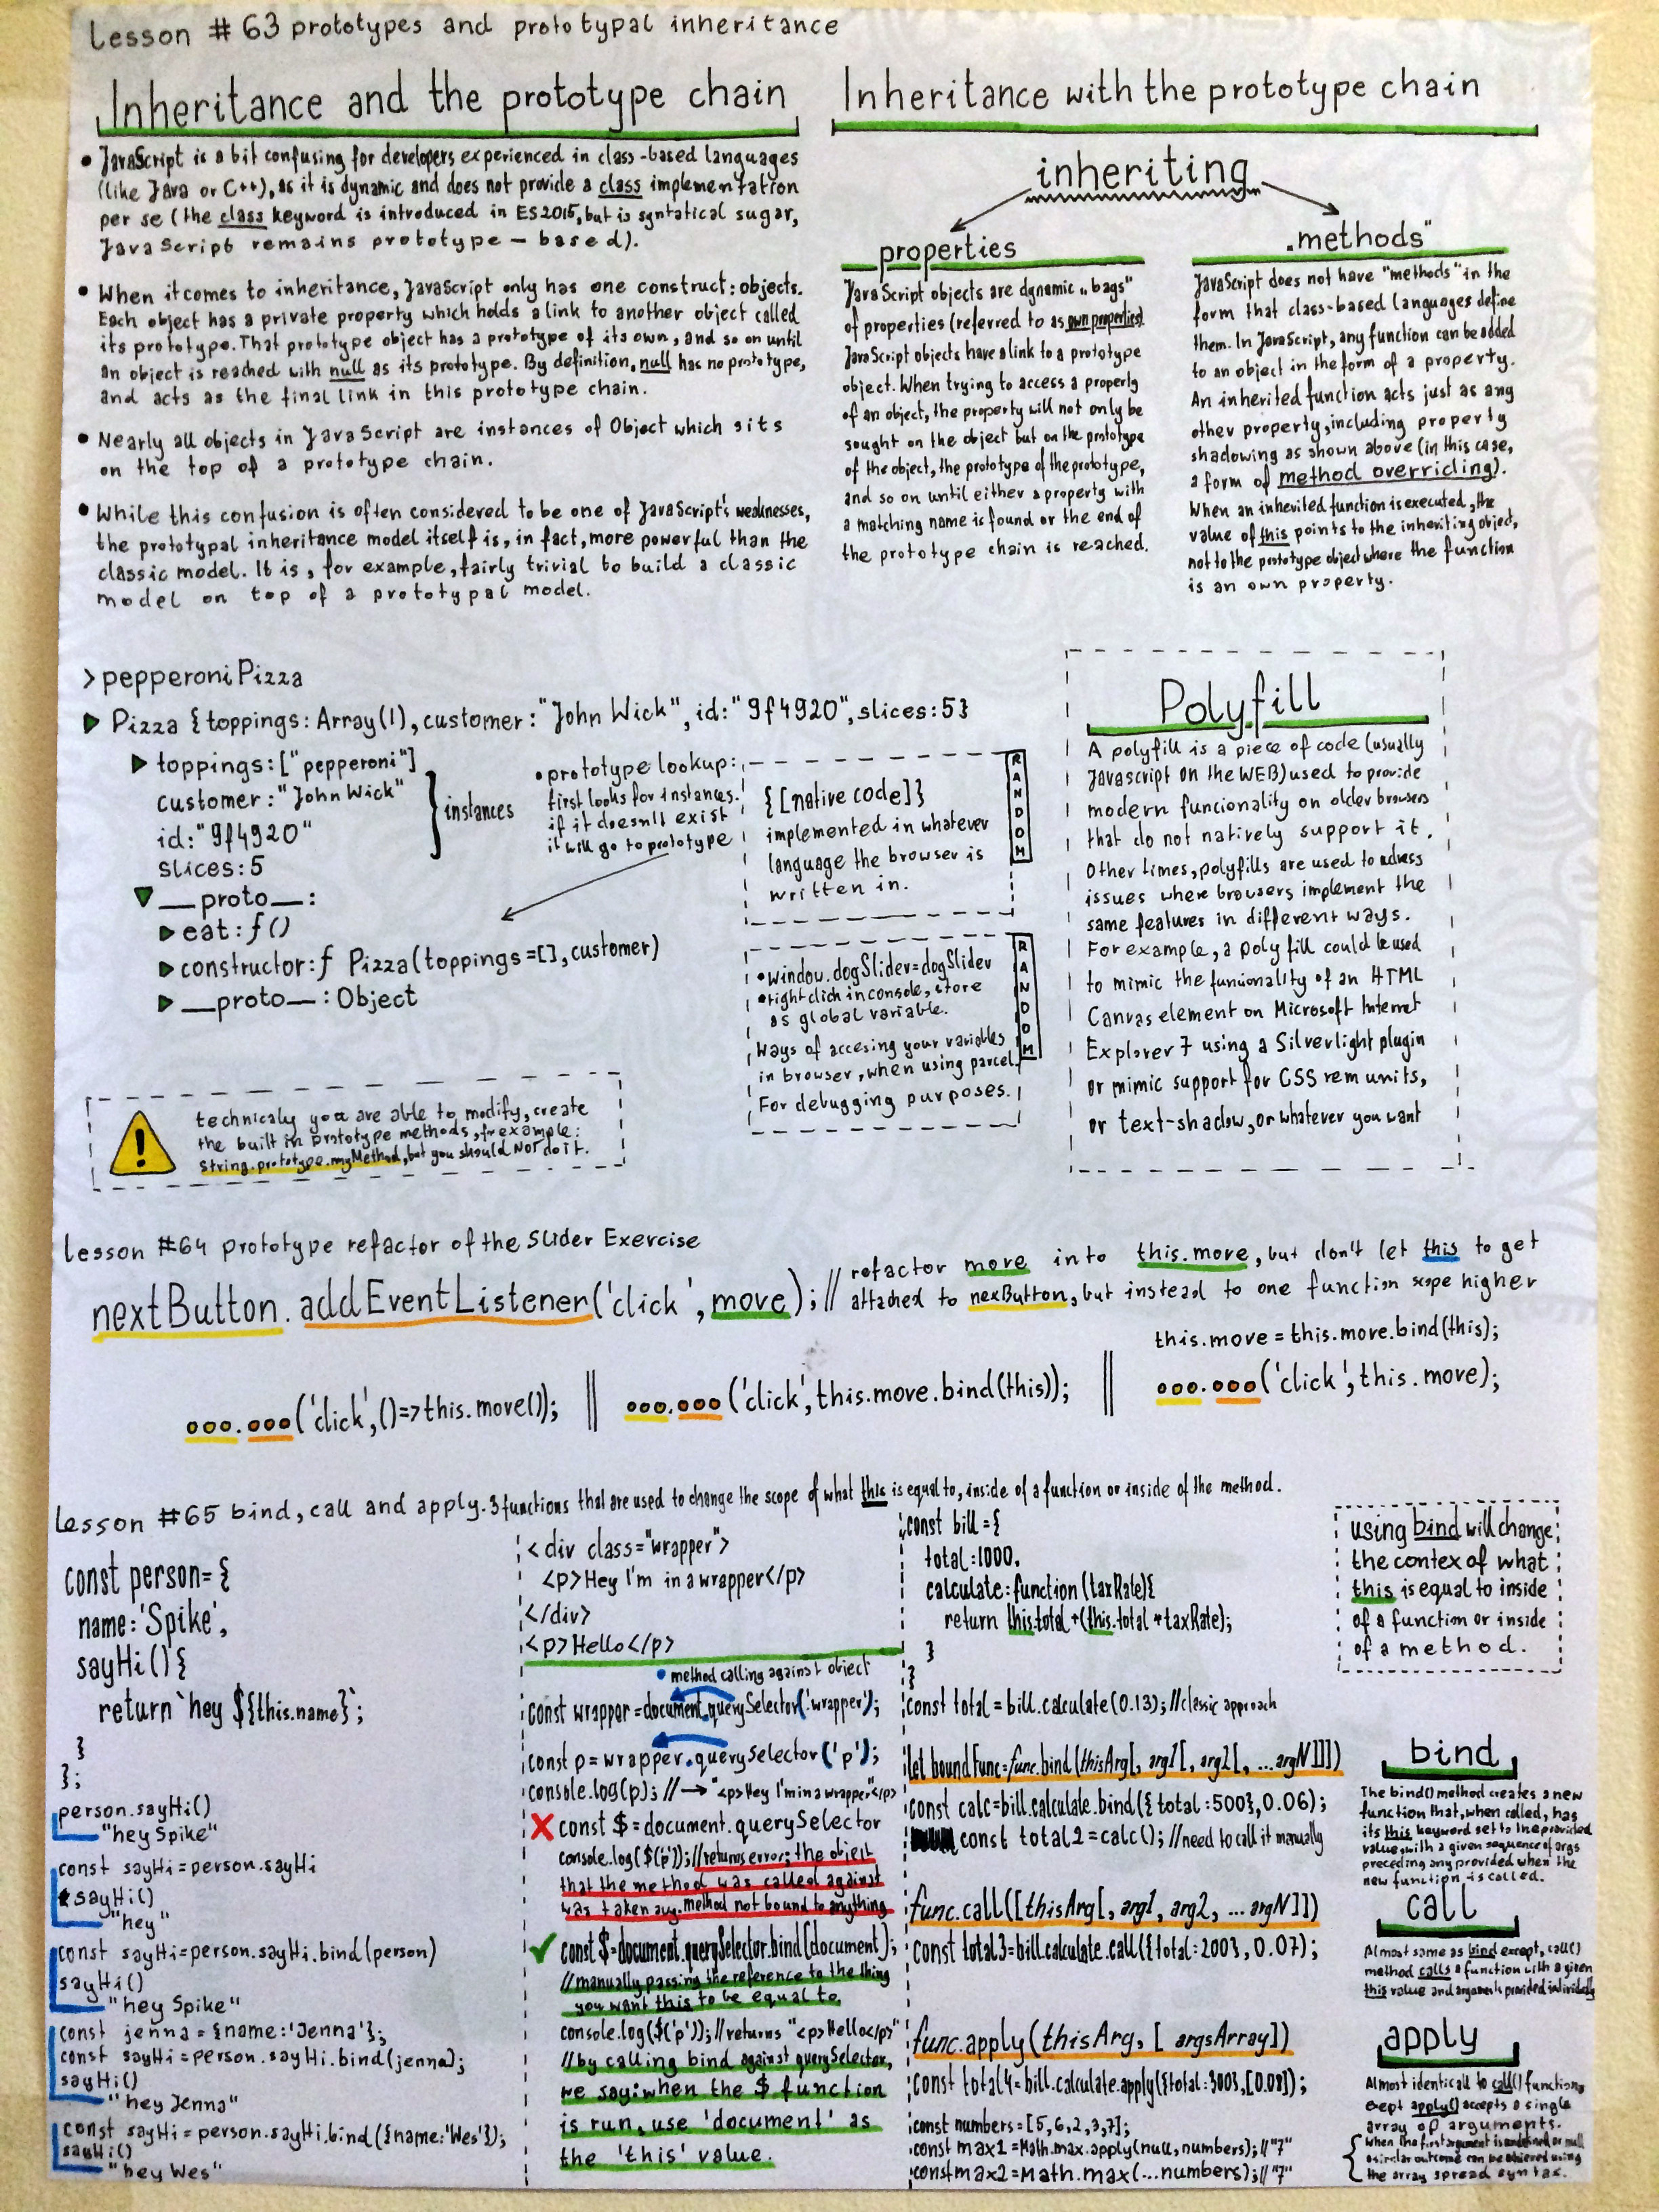 Lesson # 63 prototypes and prototypal inheritance
Inheritance and the prototype chain
• JavaScript is a bit confusing for developers experienced in class-based languages
(like Java or C++), as it is dynamic and does not provide a class implementation
per se (the class keyword is introduced in ES2015, but is syntatical sugar,
JavaScript remains prototype - based).
• When it comes to inheritance, JavaScript only has one construct: objects.
Each object has a private property which holds a link to another object called
its prototype. That prototype object has a prototype of its own, and so on until
an object is reached with null as its prototype. By definition, null has no prototype,
and acts as the final link in this prototype chain.
• Nearly all objects in JavaScript are instances of Object which sits
on the top of a prototype chain.
• While this confusion is often considered to be one of JavaScript's weaknesses,
the prototypal inheritance model itself is, in fact, more powerful than the
classic model. It is, for example, fairly trivial to build a classic
model on top of a prototypal model.
Inheritance with the prototype chain
inheriting
properties
JavaScript objects are dynamic „bags"
of properties (referred to as own properties)
JavaScript objects have a link to a prototype
object. When trying to access a property
of an object, the property will not only be
sought on the object but on the prototype
of the object, the prototype of the prototype,
and so on until either a property with
a matching name is found or the end of
the prototype chain is reached.
„methods"
JavaScript does not have "methods" in the
form that class-based languages define
them. In JavaScript, any function can be added
to an object in the form of a property.
An inherited function acts just as any
other property, including property
shadowing as shown above (in this case,
a form of method overriding).
When an inherited function is executed, the
value of this points to the inheriting object,
not to the prototype object where the function
is an own property.
> pepperoniPizza
Pizza {toppings: Array(1), customer: "John Wick", id: "9f4920", slices: 5}
toppings: ["pepperoni"]
customer: "John Wick"
id: "9f4920"
slices: 5
instances
__proto__:
eat: ƒ()
constructor: ƒ Pizza(toppings=[], customer)
__proto__: Object
• prototype lookup:
first looks for instances.
if it doesn't exist
it will go to prototype
{[native code]}
implemented in whatever
language the browser is
written in.
RANDOM
• window.dogSlider=dogSlider
• right click in console, store
as global variable.
Ways of accesing your variables
in browser, when using parcel.
For debugging purposes.
RANDOM
Polyfill
A polyfill is a piece of code (usually
Javascript on the WEB) used to provide
modern funcionality on older browsers
that do not natively support it.
Other times, polyfills are used to adress
issues where browsers implement the
same features in different ways.
For example, a poly fill could be used
to mimic the funuionality of an HTML
Canvas element on Microsoft Internet
Explorer 7 using a Silverlight plugin
or mimic support for CSS rem units,
or text-shadow, or whatever you want
! technicaly you are able to modify, create
the built in prototype methods, for example:
String.prototype.myMethod, but you should NOT do it.
Lesson #64 prototype refactor of the Slider Exercise
nextButton.addEventListener('click', move); // refactor move into this.move, but don't let this to get
attached to nexButton, but instead to one function scope higher
ooo.ooo('click', ()=>this.move()); || ooo.ooo('click', this.move.bind(this)); ||
this.move = this.move.bind(this);
ooo.ooo('click', this.move);
Lesson #65 bind, call and apply. 3 functions that are used to change the scope of what this is equal to, inside of a function or inside of the method.
const person= {
name: 'Spike',
sayHi() {
return `hey ${this.name}`;
}
};
person.sayHi()
"hey Spike"
const sayHi = person.sayHi
sayHi()
"hey"
const sayHi = person.sayHi.bind(person)
sayHi()
"hey Spike"
const jenna = {name: 'Jenna'};
const sayHi = person.sayHi.bind(jenna);
sayHi()
"hey Jenna"
const sayHi = person.sayHi.bind({name:'Wes'});
sayHi()
"hey Wes"
<div class="wrapper">
<p>Hey I'm in a wrapper</p>
</div>
<p>Hello</p>
• method calling against object
const wrapper = document.querySelector('.wrapper');
const p = wrapper.querySelector('p');
console.log(p); // → "<p>Hey I'm in a wrapper"</p>
const $ = document.querySelector
console.log($('p')); // returns error; the object
that the method was called against
was taken away. method not bound to anything
const $=document.querySelector.bind(document);
// manually passing the reference to the thing
you want this to be equal to.
console.log($('p')); // returns "<p>Hello</p>"
// by calling bind against querySelector,
we say: when the $ function
is run, use 'document' as
the 'this' value.
const bill = {
total: 1000,
calculate: function (taxRate) {
return this.total + (this.total * taxRate);
}
}
const total = bill.calculate(0.13); // classic approach
let boundFunc=func.bind(thisArg[, arg1[, arg2[, ...argN]]])
const calc = bill.calculate.bind({total:500}, 0.06);
const total2 = calc(); // need to call it manually
func.call([thisArg[, arg1, arg2, ... argN]])
const total3 = bill.calculate.call({total:200}, 0.07);
func.apply(thisArg, [ argsArray])
const total4 = bill.calculate.apply({total:300}, [0.08]);
const numbers = [5,6,2,3,7];
const max1 = Math.max.apply(null, numbers); // "7"
const max2 = Math.max(...numbers); // "7"
using bind will change
the contex of what
this is equal to inside
of a function or inside
of a method.
bind
The bind() method creates a new
function that, when called, has
its this keyword set to the provided
value, with a given sequence of args
preceding any provided when the
new function is called.
call
Almost same as bind except, call()
method calls a function with a given
this value and arguments provided individually
apply
Almost identical to call() function,
exept apply() accepts a single
array of arguments.
When the first argument is undefined or null
a similar outcome can be achieved using
the array spread syntax.